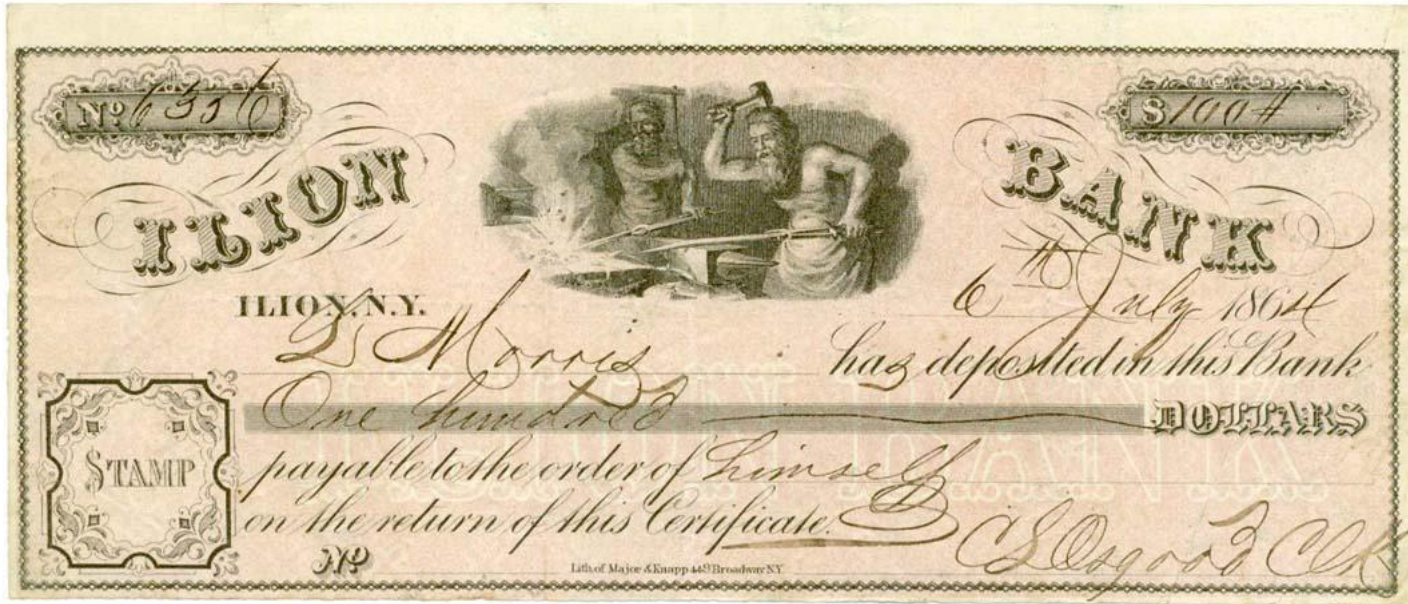 Nº 6356
$ 100 #
ILION BANK
ILION, N.Y. 6th July 1864
L Morris has deposited in this Bank
One hundred DOLLARS
payable to the order of himself
on the return of this Certificate.
STAMP
Nº
C S Osgood Clk
Lith. of Major & Knapp 449 Broadway N.Y.